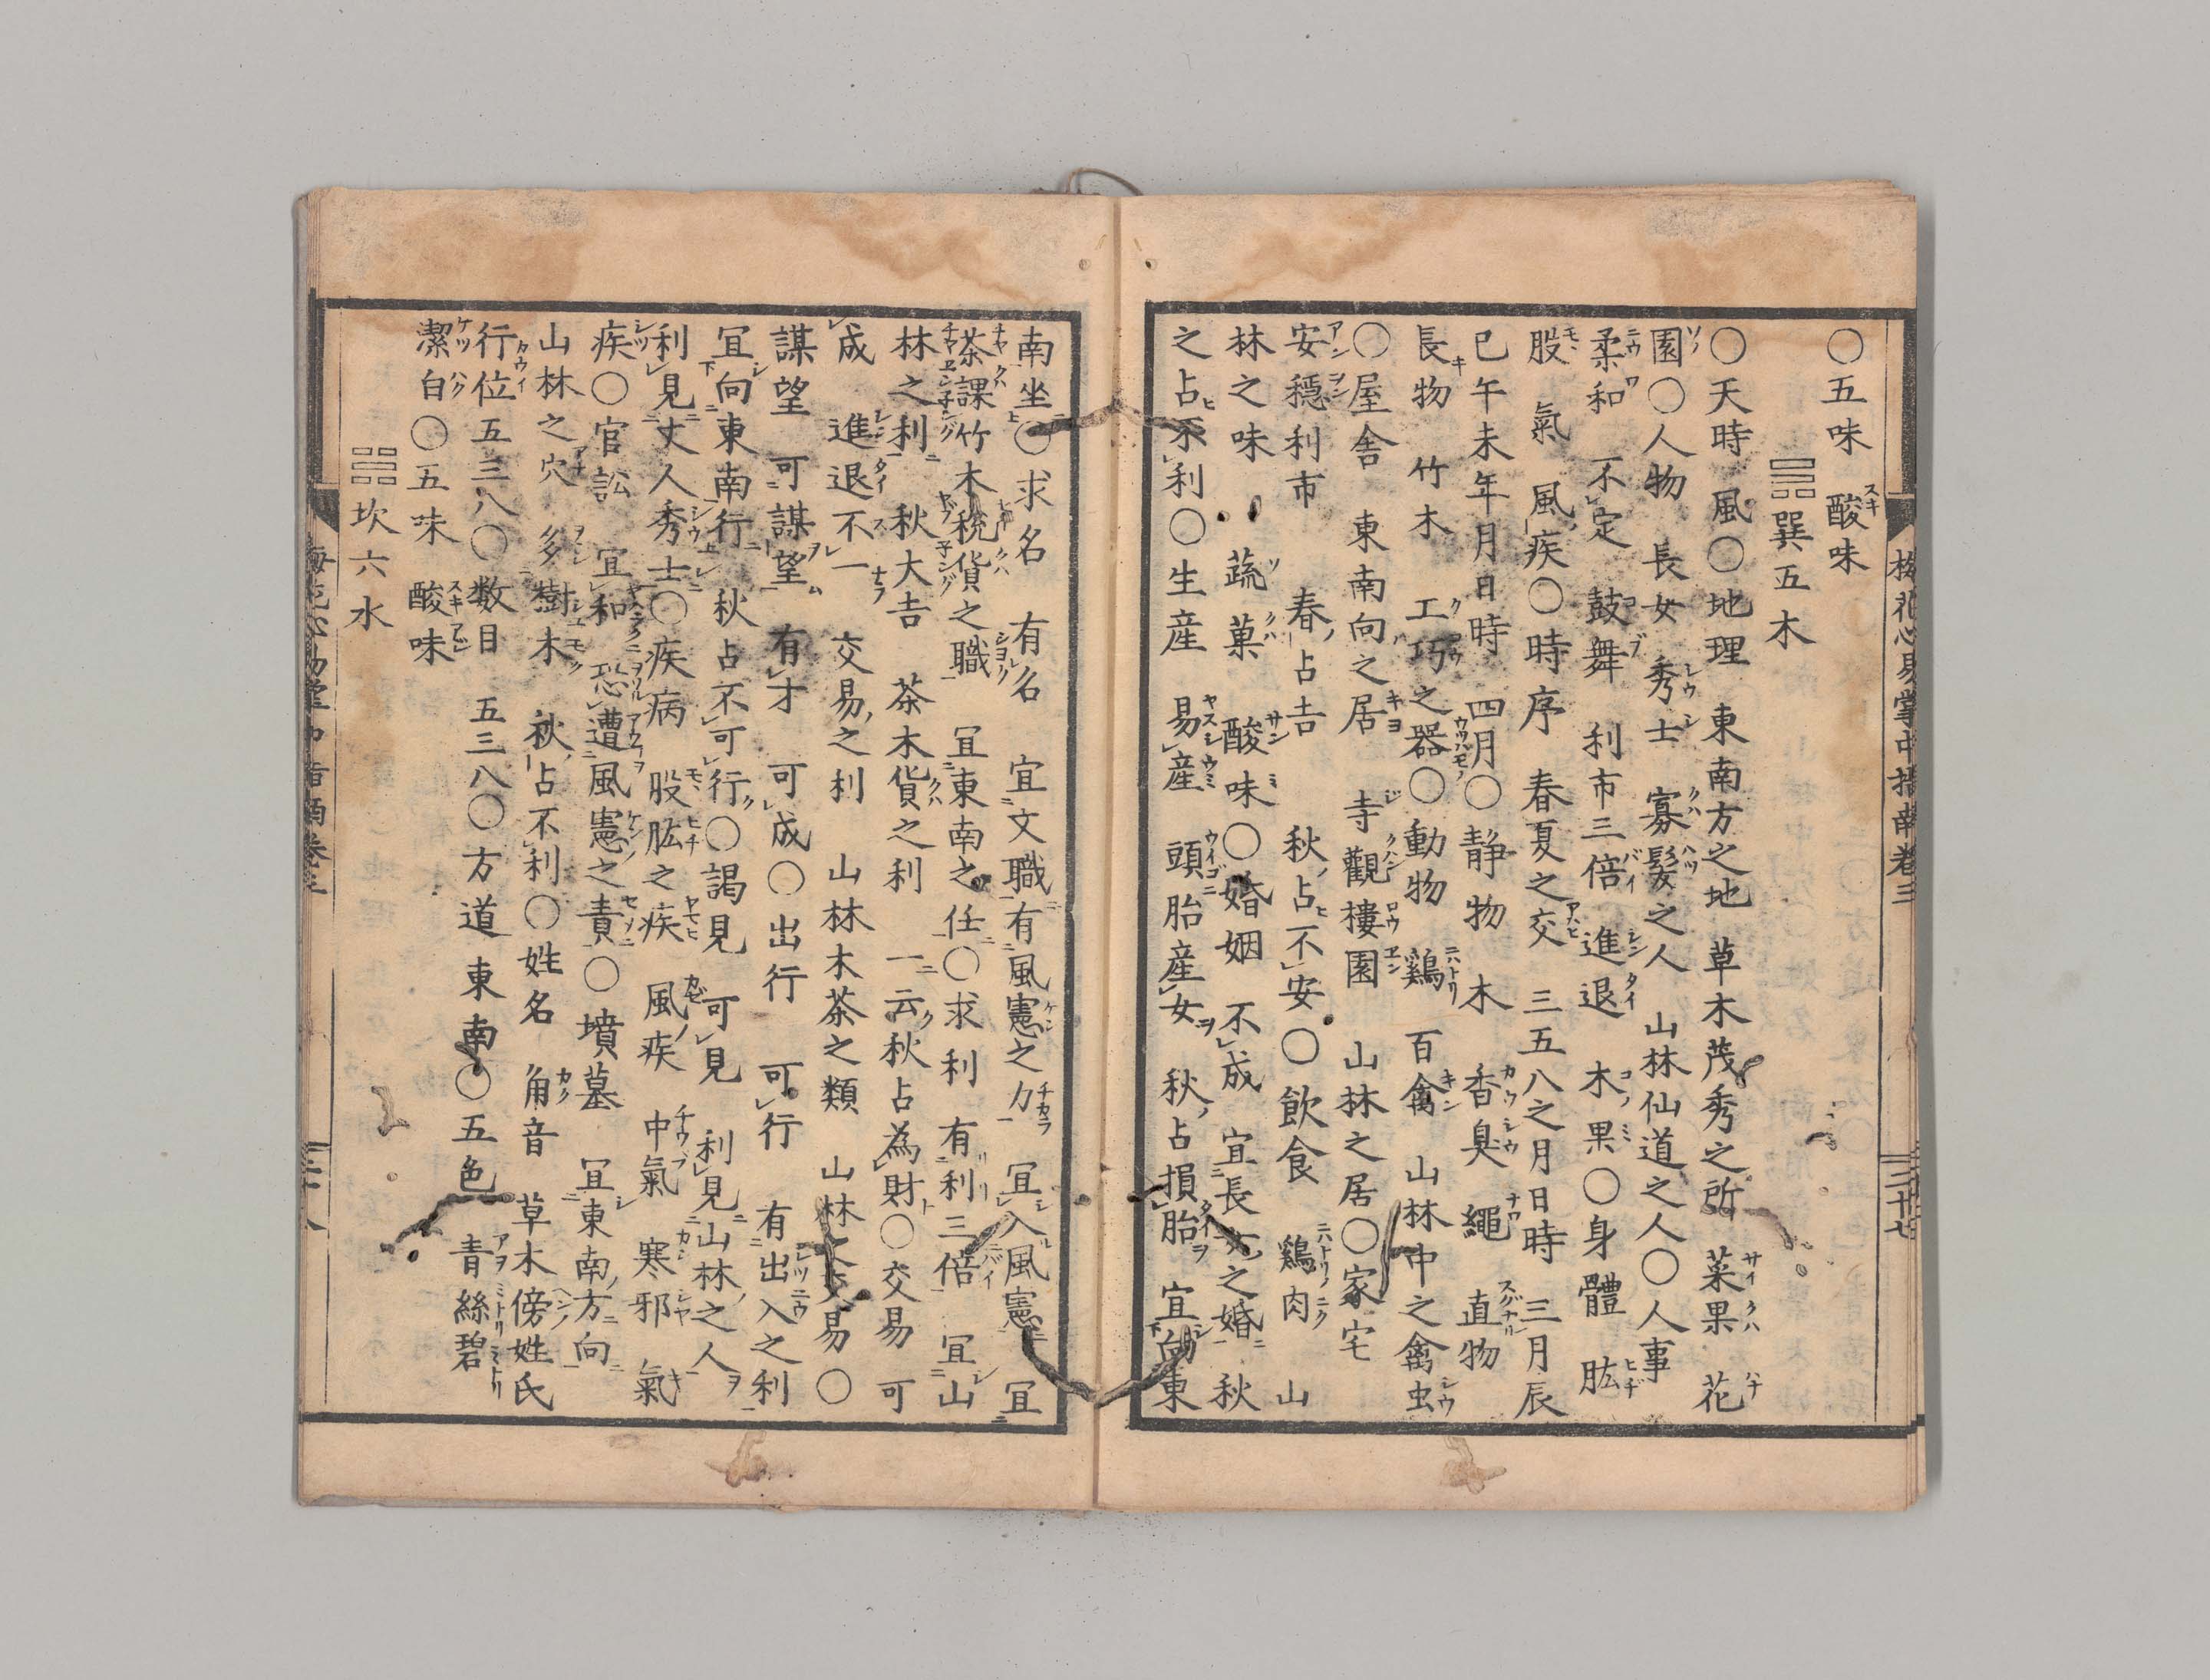 〇五味　酸味
☴巽五木
〇天時　風〇地理　東南方之地　草木茂秀之所　菜果　花
園〇人物　長女　秀士　寡髮之人　山林仙道之人〇人事
柔和　不定　鼓舞　利市三倍　進退　木果〇身體　肱
股　氣　風疾〇時序　春夏之交　三五八之月日時　三月辰
巳午未年月日時　四月〇静物　木　香臭　繩　直物
長物　竹木　工巧之器〇動物　鷄　百禽　山林中之禽虫
〇屋舎　東南向之居　寺觀樓園　山林之居〇家宅
安穏利市　春占吉　秋占不安〇飲食　鷄肉　山
林之味　蔬菓　酸味〇婚姻　不成　宜長女之婚　秋
之占不利〇生産　易産　頭胎産女　秋占損胎　宜向東
南坐〇求名　有名　宜文職有風憲之力　宜入風憲　宜
茶課竹木税貨之職　宜東南之任〇求利　有利三倍　宜山
林之利　秋大吉　茶木貨之利　一云秋占為財〇交易　可
成　進退不一　交易之利　山林木茶之類　山林之交易〇
謀望　可謀望　有才　可成〇出行　可行　有出入之利
宜向東南行　秋占不可行〇謁見　可見　利見山林之人
利見丈人秀士〇疾病　股肱之疾　風疾　中氣　寒邪　氣
疾〇官訟　宜和　恐遭風憲之責〇墳墓　宜東南方向
山林之穴　多樹木　秋占不利〇姓名　角音　草木傍姓氏
行位五三八〇数目　五三八〇方道　東南〇五色　青綠碧
潔白〇五味　酸味
☵坎六水
梅花心易掌中指南卷三
三十七